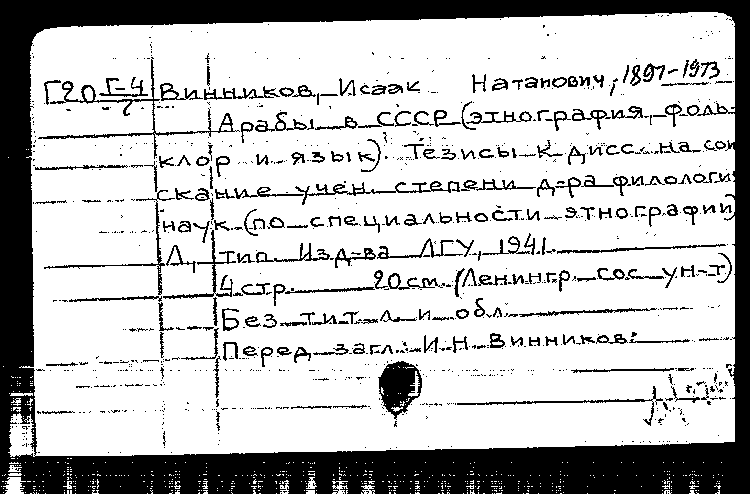 Г20 Г-4/2 Винников, Исаак Натанович, 1897-1973
Арабы в СССР (этнография, фоль-
клор и язык). Тезисы к дисс. на сои
скание учен. степени д-ра филологи
наук (по специальности этнографии)
Л., тип. Изд-ва ЛГУ, 1941.
4 стр. 20 см. (Ленингр. гос. ун-т)
Без тит. л. и обл.
Перед загл.: И.Н. Винников.